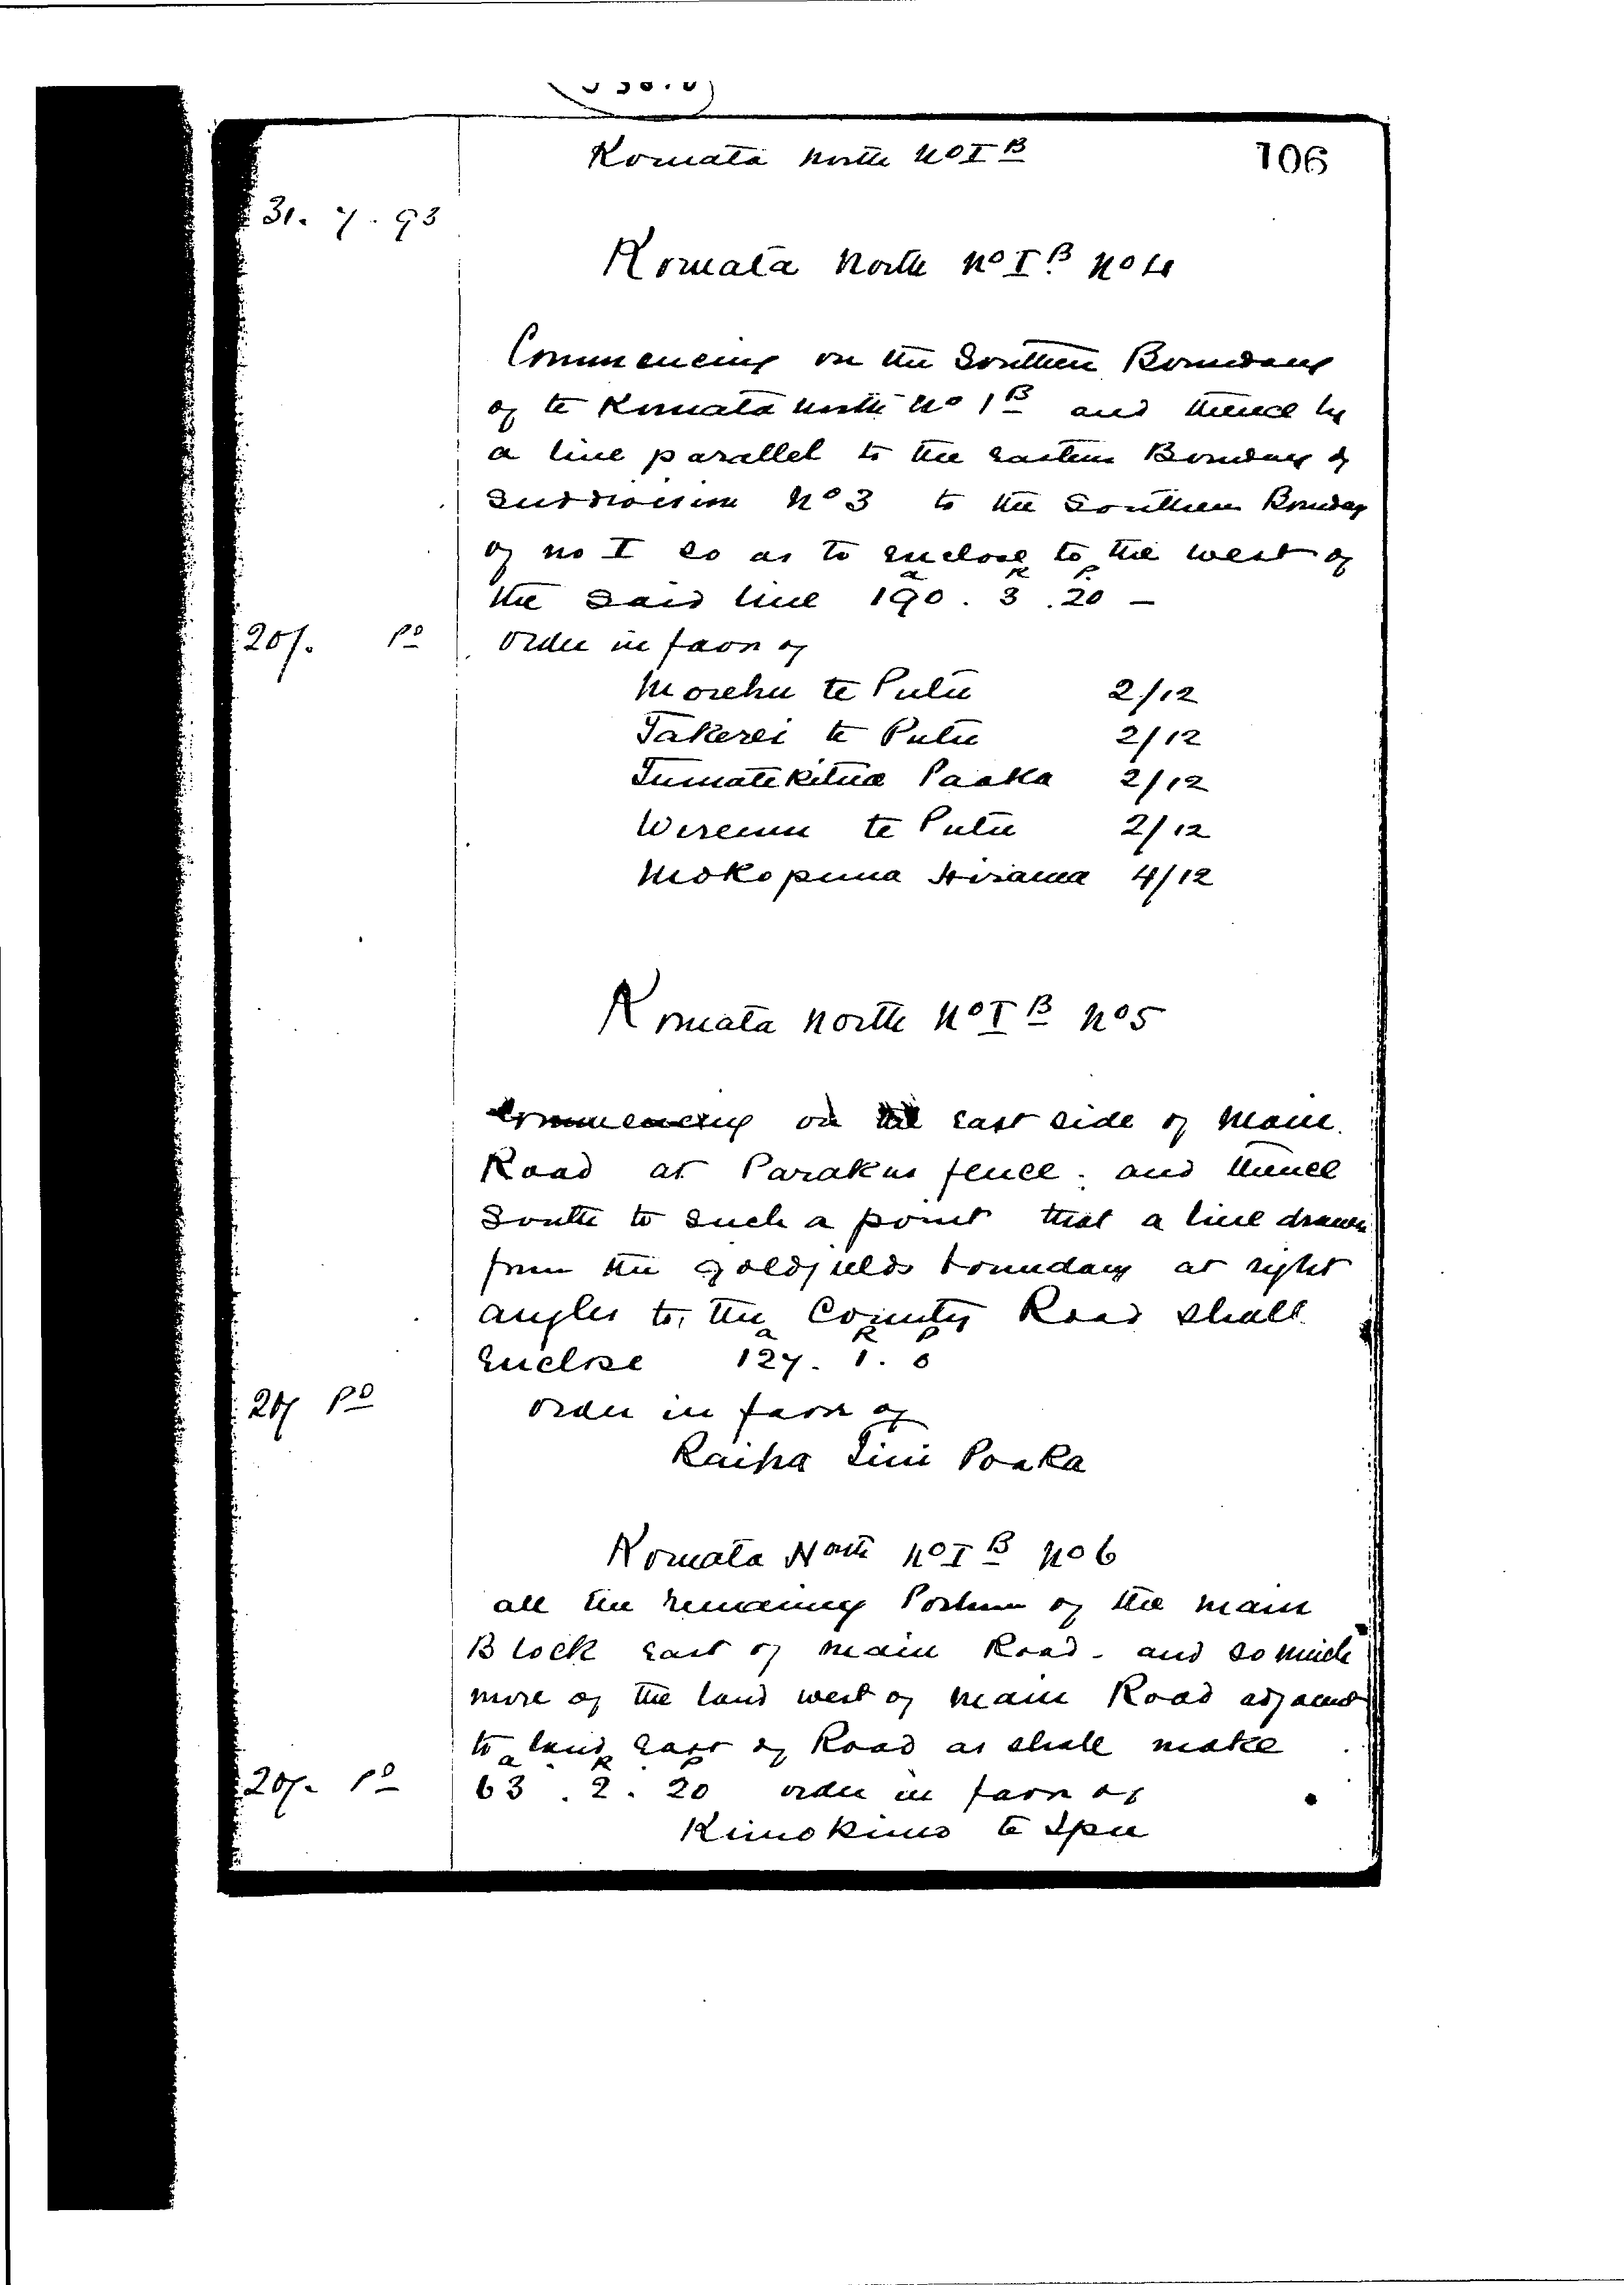 Komata North No I B
106
31. 7. 93
Komata North No I B No 4
Commencing on the Southern Boundary
of te Komata North No 1 B and thence by
a line parallel to the Eastern Boundary of
Subdivision No 3 to the Southern Bounday
of no I so as to enclose to the west of
a R P
the said line 190. 3. 20 -
20/. Po order in favor of
Morehu te Putu 2/12
Takerei te Putu 2/12
Tumate Kitua Paaka 2/12
Wiremu te Putu 2/12
Mokopuna Hirama 4/12
Komata North No I B No 5
Commencing on the East side of Main
Road at Parakus fence. and thence
South to such a point that a line drawn
from the goldfields boundary at right
angles to the County Road shall
a R P
Enclose 127. 1. 0
20/ Po order in favor of
Raiha Tini Poaka
Komata North No I B No 6
all the remaining Portion of the main
Block East of Main Road. and so much
more of the land west of Main Road adjacent
to land East of Road as shall make
a R P
20/- Po 63. 2. 20 order in favor of
Kimokimo te Ipu